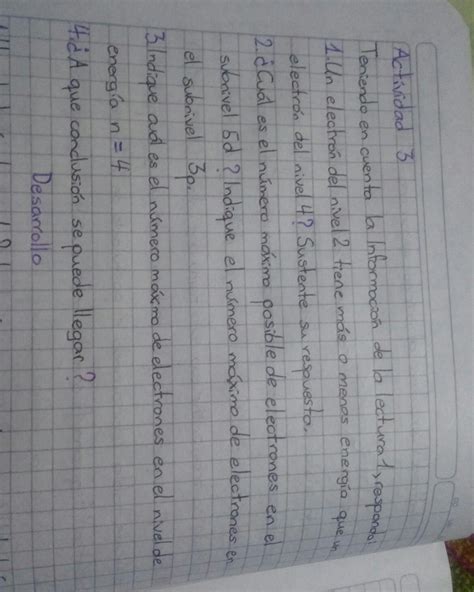 Actividad 3
Teniendo en cuenta la Información de la lectura 1, responda:
1. Un electrón del nivel 2 tiene más o menos energía que un
electrón del nivel 4? Sustente su respuesta.
2. ¿Cuál es el número máximo posible de electrones en el
subnivel 5d? Indique el número máximo de electrones en
el subnivel 3p.
3. Indique cual es el número máximo de electrones en el nivel de
energía n = 4
4. ¿A que conclusión se puede llegar?
Desarrollo